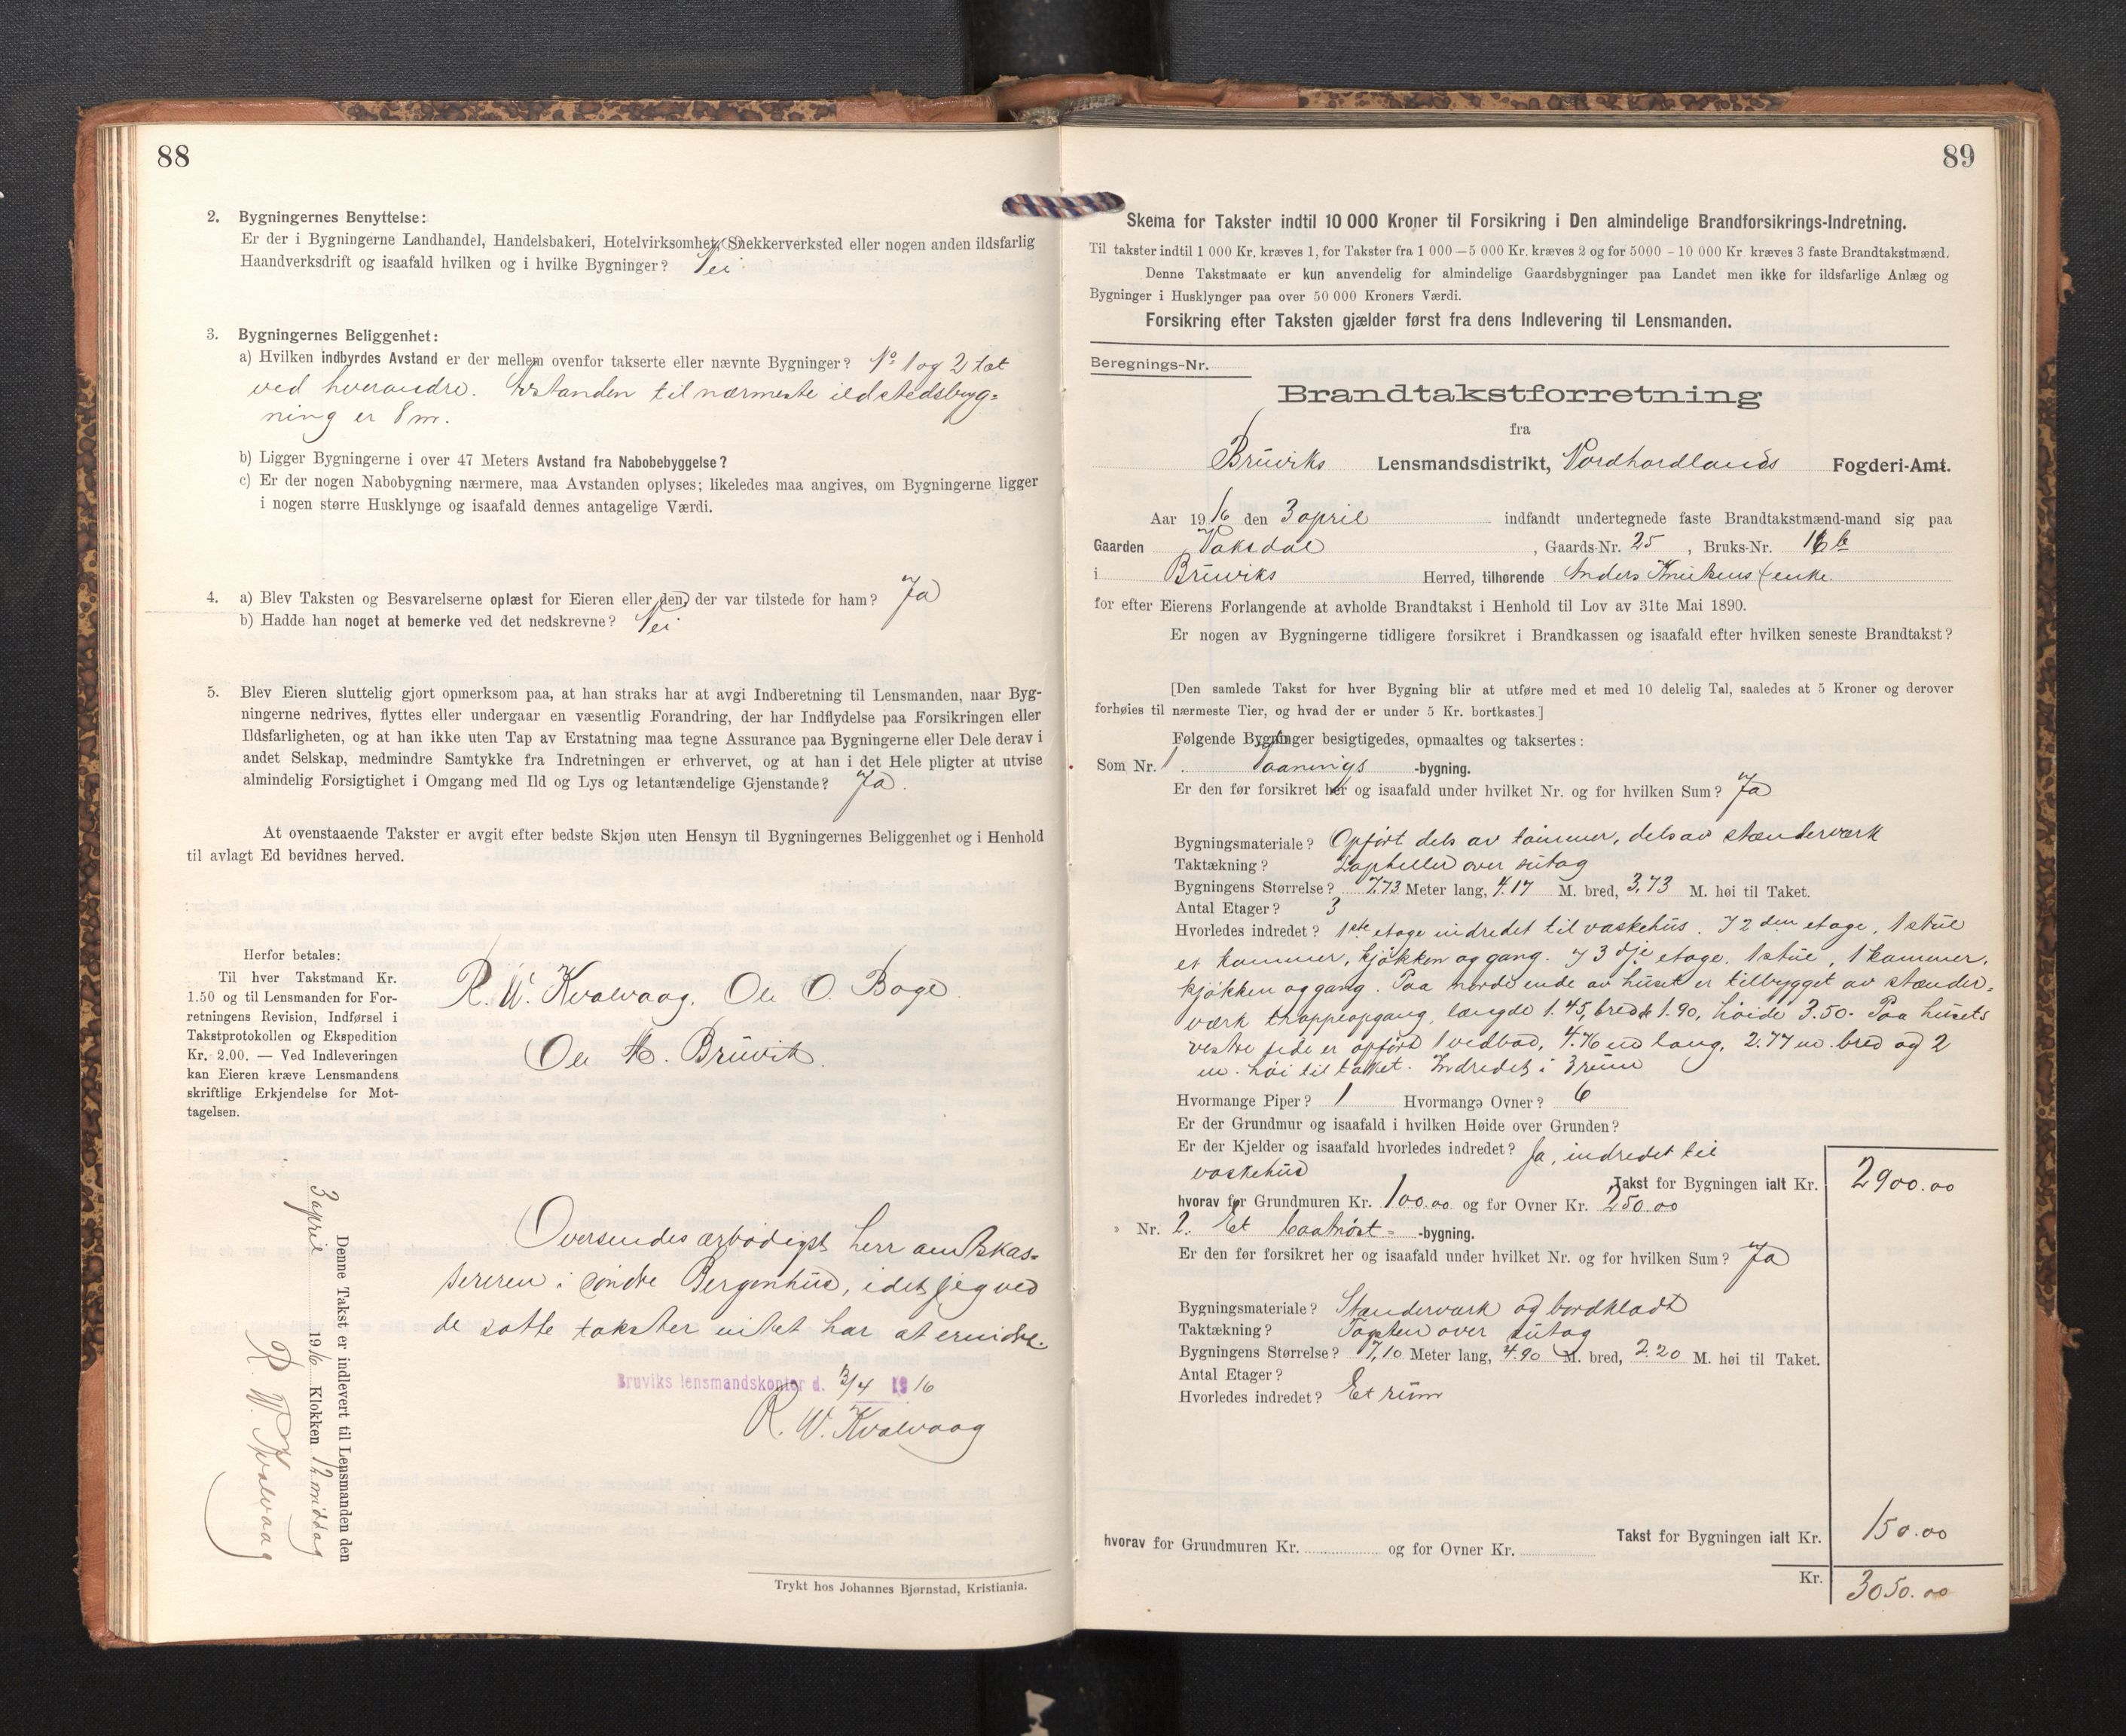 88
2. Bygningernes Benyttelse:
Er der i Bygningerne Landhandel, Handelsbakeri, Hotelvirksomhet, Snekkerverksted eller nogen anden ildsfarlig
Haandverksdrift og isaafald hvilken og i hvilke Bygninger? Nei
3. Bygningernes Beliggenhet:
a) Hvilken indbyrdes Avstand er der mellem ovenfor takserte eller nævnte Bygninger? No 1 og 2 tæt
ved hverandre. Avstanden til nærmeste ildstedsbyg=
ning er 8 m.
b) Ligger Bygningerne i over 47 Meters Avstand fra Nabobebyggelse?
c) Er der nogen Nabobygning nærmere, maa Avstanden oplyses; likeledes maa angives, om Bygningerne ligger
i nogen større Husklynge og isaafald dennes antagelige Værdi.
4. a) Blev Taksten og Besvarelserne oplæst for Eieren eller den, der var tilstede for ham? Ja
b) Hadde han noget at bemerke ved det nedskrevne? Nei
5. Blev Eieren sluttelig gjort opmerksom paa, at han straks har at avgi Indberetning til Lensmanden, naar Byg-
ningerne nedrives, flyttes eller undergaar en væsentlig Forandring, der har Indflydelse paa Forsikringen eller
Ildsfarligheten, og at han ikke uten Tap av Erstatning maa tegne Assurance paa Bygningerne eller Dele derav i
andet Selskap, medmindre Samtykke fra Indretningen er erhvervet, og at han i det Hele pligter at utvise
almindelig Forsigtighet i Omgang med Ild og Lys og letantændelige Gjenstande? Ja.
At ovenstaaende Takster er avgit efter bedste Skjøn uten Hensyn til Bygningernes Beliggenhet og i Henhold
til avlagt Ed bevidnes herved.
Herfor betales:
Til hver Takstmand Kr.
1.50 og til Lensmanden for For-
retningens Revision, Indførsel i
Takstprotokollen og Ekspedition
Kr. 2.00. — Ved Indleveringen
kan Eieren kræve Lensmandens
skriftlige Erkjendelse for Mot-
tagelsen.
R. W. Kvalvaag. Ole O. Boge.
Ole A. Bruvik.
Denne Takst er indlevert til Lensmanden den
3 april 1916 Klokken 12 middag
R. W. Kvalvaag
Oversendes ærbødigst herr amtskas=
sereren i søndre Bergenhus, idet jeg ved
de satte takster intet har at erindre.
Bruviks lensmandskontor d. 3/4 1916
R. W. Kvalvaag
Trykt hos Johannes Bjørnstad, Kristiania.
89
Skema for Takster indtil 10 000 Kroner til Forsikring i Den almindelige Brandforsikrings-Indretning.
Til takster indtil 1 000 Kr. kræves 1, for Takster fra 1 000 — 5 000 Kr. kræves 2 og for 5000 - 10 000 Kr kræves 3 faste Brandtakstmænd.
Denne Takstmaate er kun anvendelig for almindelige Gaardsbygninger paa Landet men ikke for ildsfarlige Anlæg og
Bygninger i Husklynger paa over 50 000 Kroners Værdi.
Forsikring efter Taksten gjælder først fra dens Indlevering til Lensmanden.
Beregnings-Nr.
Brandtakstforretning
fra
Bruviks Lensmandsdistrikt, Nordhordlands Fogderi-Amt.
Aar 1916 den 3 april indfandt undertegnede faste Brandtakstmænd-mand sig paa
Gaarden Vaksdal, Gaards-Nr. 25, Bruks-Nr. 16 b
i Bruviks Herred, tilhørende Anders Knutsens enke.
for efter Eierens Forlangende at avholde Brandtakst i Henhold til Lov av 31te Mai 1890.
Er nogen av Bygningerne tidligere forsikret i Brandkassen og isaafald efter hvilken seneste Brandtakst?
[Den samlede Takst for hver Bygning blir at utføre med et med 10 delelig Tal, saaledes at 5 Kroner og derover
forhøies til nærmeste Tier, og hvad der er under 5 Kr. bortkastes]
Følgende Bygninger besigtigedes, opmaaltes og taksertes:
Som Nr. 1 Vaanings -bygning.
Er den før forsikret her og isaafald under hvilket Nr. og for hvilken Sum? Ja
Bygningsmateriale? Opført dels av tømmer, dels av stænderværk
Taktækning? Lapheller over sutag
Bygningens Størrelse? 7.73 Meter lang, 4.17 M. bred, 3,73 M. høi til Taket.
Antal Etager? 3
Hvorledes indredet? 1ste etage indredet til vaskehus. I 2den etage, 1 stue
et kammer, kjøkken og gang. I 3dje etage. 1 stue, 1 kammer,
kjøkken og gang. Paa nordre ende av huset er tilbygget av stænder=
værk trappeopgang, længde 1.45, bredde 1.90, høide 3.50. Paa husets
vestre side er opført 1 vedbod, 4.76 m lang, 2.77 m. bred og 2
m. høi til taket. Indredet i 3 rum
Hvormange Piper? 1 Hvormange Ovner? 6
Er der Grundmur og isaafald i hvilken Høide over Grunden?
Er der Kjelder og isaafald hvorledes indredet? Ja, indredet til
vaskehus
Takst for Bygningen ialt Kr. 2900.00
hvorav for Grundmuren Kr. 100.00 og for Ovner Kr. 250.00
» Nr. 2. Et baatnøst= -bygning.
Er den før forsikret her og isaafald under hvilket Nr. og for hvilken Sum? Ja
Bygningsmateriale? Stænderværk og bordklædt
Taktækning? Tagsten over sutag
Bygningens Størrelse? 7,10 Meter lang, 4.90 M. bred, 2.20 M. høi til Taket.
Antal Etager?
Hvorledes indredet? Et rum
Takst for Bygningen ialt Kr. 150.00
hvorav for Grundmuren Kr. og for Ovner Kr.
Kr. 3050.00